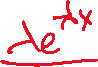 λe^{λx}